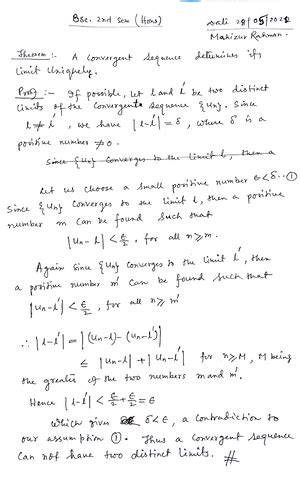 BSc. 2nd Sem (Hons)
Date 28/05/2022
Mahizur Rahman.
Theorem :- A convergent sequence determines its
limit uniquely.
Proof :- If possible, let l and l' be two distinct
limits of the convergent sequence {Un}. Since
l ≠ l', we have |l-l'| = δ, where δ is a
positive number ≠ 0.
Since {Un} converges to the limit l, then a
Let us choose a small positive number ϵ<δ...①
Since {Un} converges to the limit l, then a positive
number m can be found such that
|Un - l| < ϵ/2, for all n ≥ m.
Again since {Un} converges to the limit l', then
a positive number m' can be found such that
|Un - l'| < ϵ/2, for all n ≥ m'
∴ |l-l'| = |(Un-l) - (Un-l')|
≤ |Un-l| + |Un-l'| for n ≥ M, M being
the greater of the two numbers m and m'.
Hence |l-l'| < ϵ/2 + ϵ/2 = ϵ
Which gives δ<ϵ, a contradiction to
our assumption ①. Thus a convergent sequence
can not have two distinct limits. #